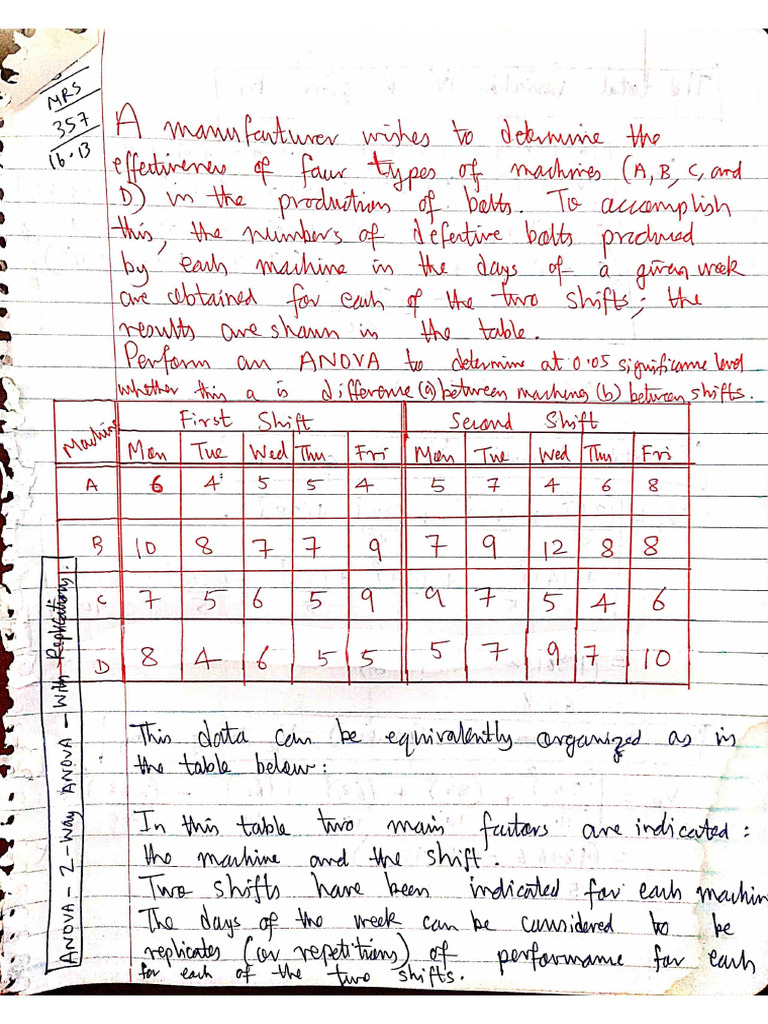 MRS
357
16.13
A manufacturer wishes to determine the
effectiveness of four types of machines (A, B, C, and
D) in the production of bolts. To accomplish
this, the numbers of defective bolts produced
by each machine in the days of a given week
are obtained for each of the two shifts; the
results are shown in the table.
Perform an ANOVA to determine at 0.05 significance level
whether this a is difference (a) between machines (b) between shifts.
Machine First Shift Second Shift
Mon Tue Wed Thu Fri Mon Tue Wed Thu Fri
A 6 4 5 5 4 5 7 4 6 8
B 10 8 7 7 9 7 9 12 8 8
C 7 5 6 5 9 9 7 5 4 6
D 8 4 6 5 5 5 7 9 7 10
ANOVA - 2-Way ANOVA - With Replications.
This data can be equivalently organized as in
the table below:
In this table two main factors are indicated:
the machine and the shift.
Two shifts have been indicated for each machine
The days of the week can be considered to be
replicates (or repetitions) of performance for each
for each of the two shifts.